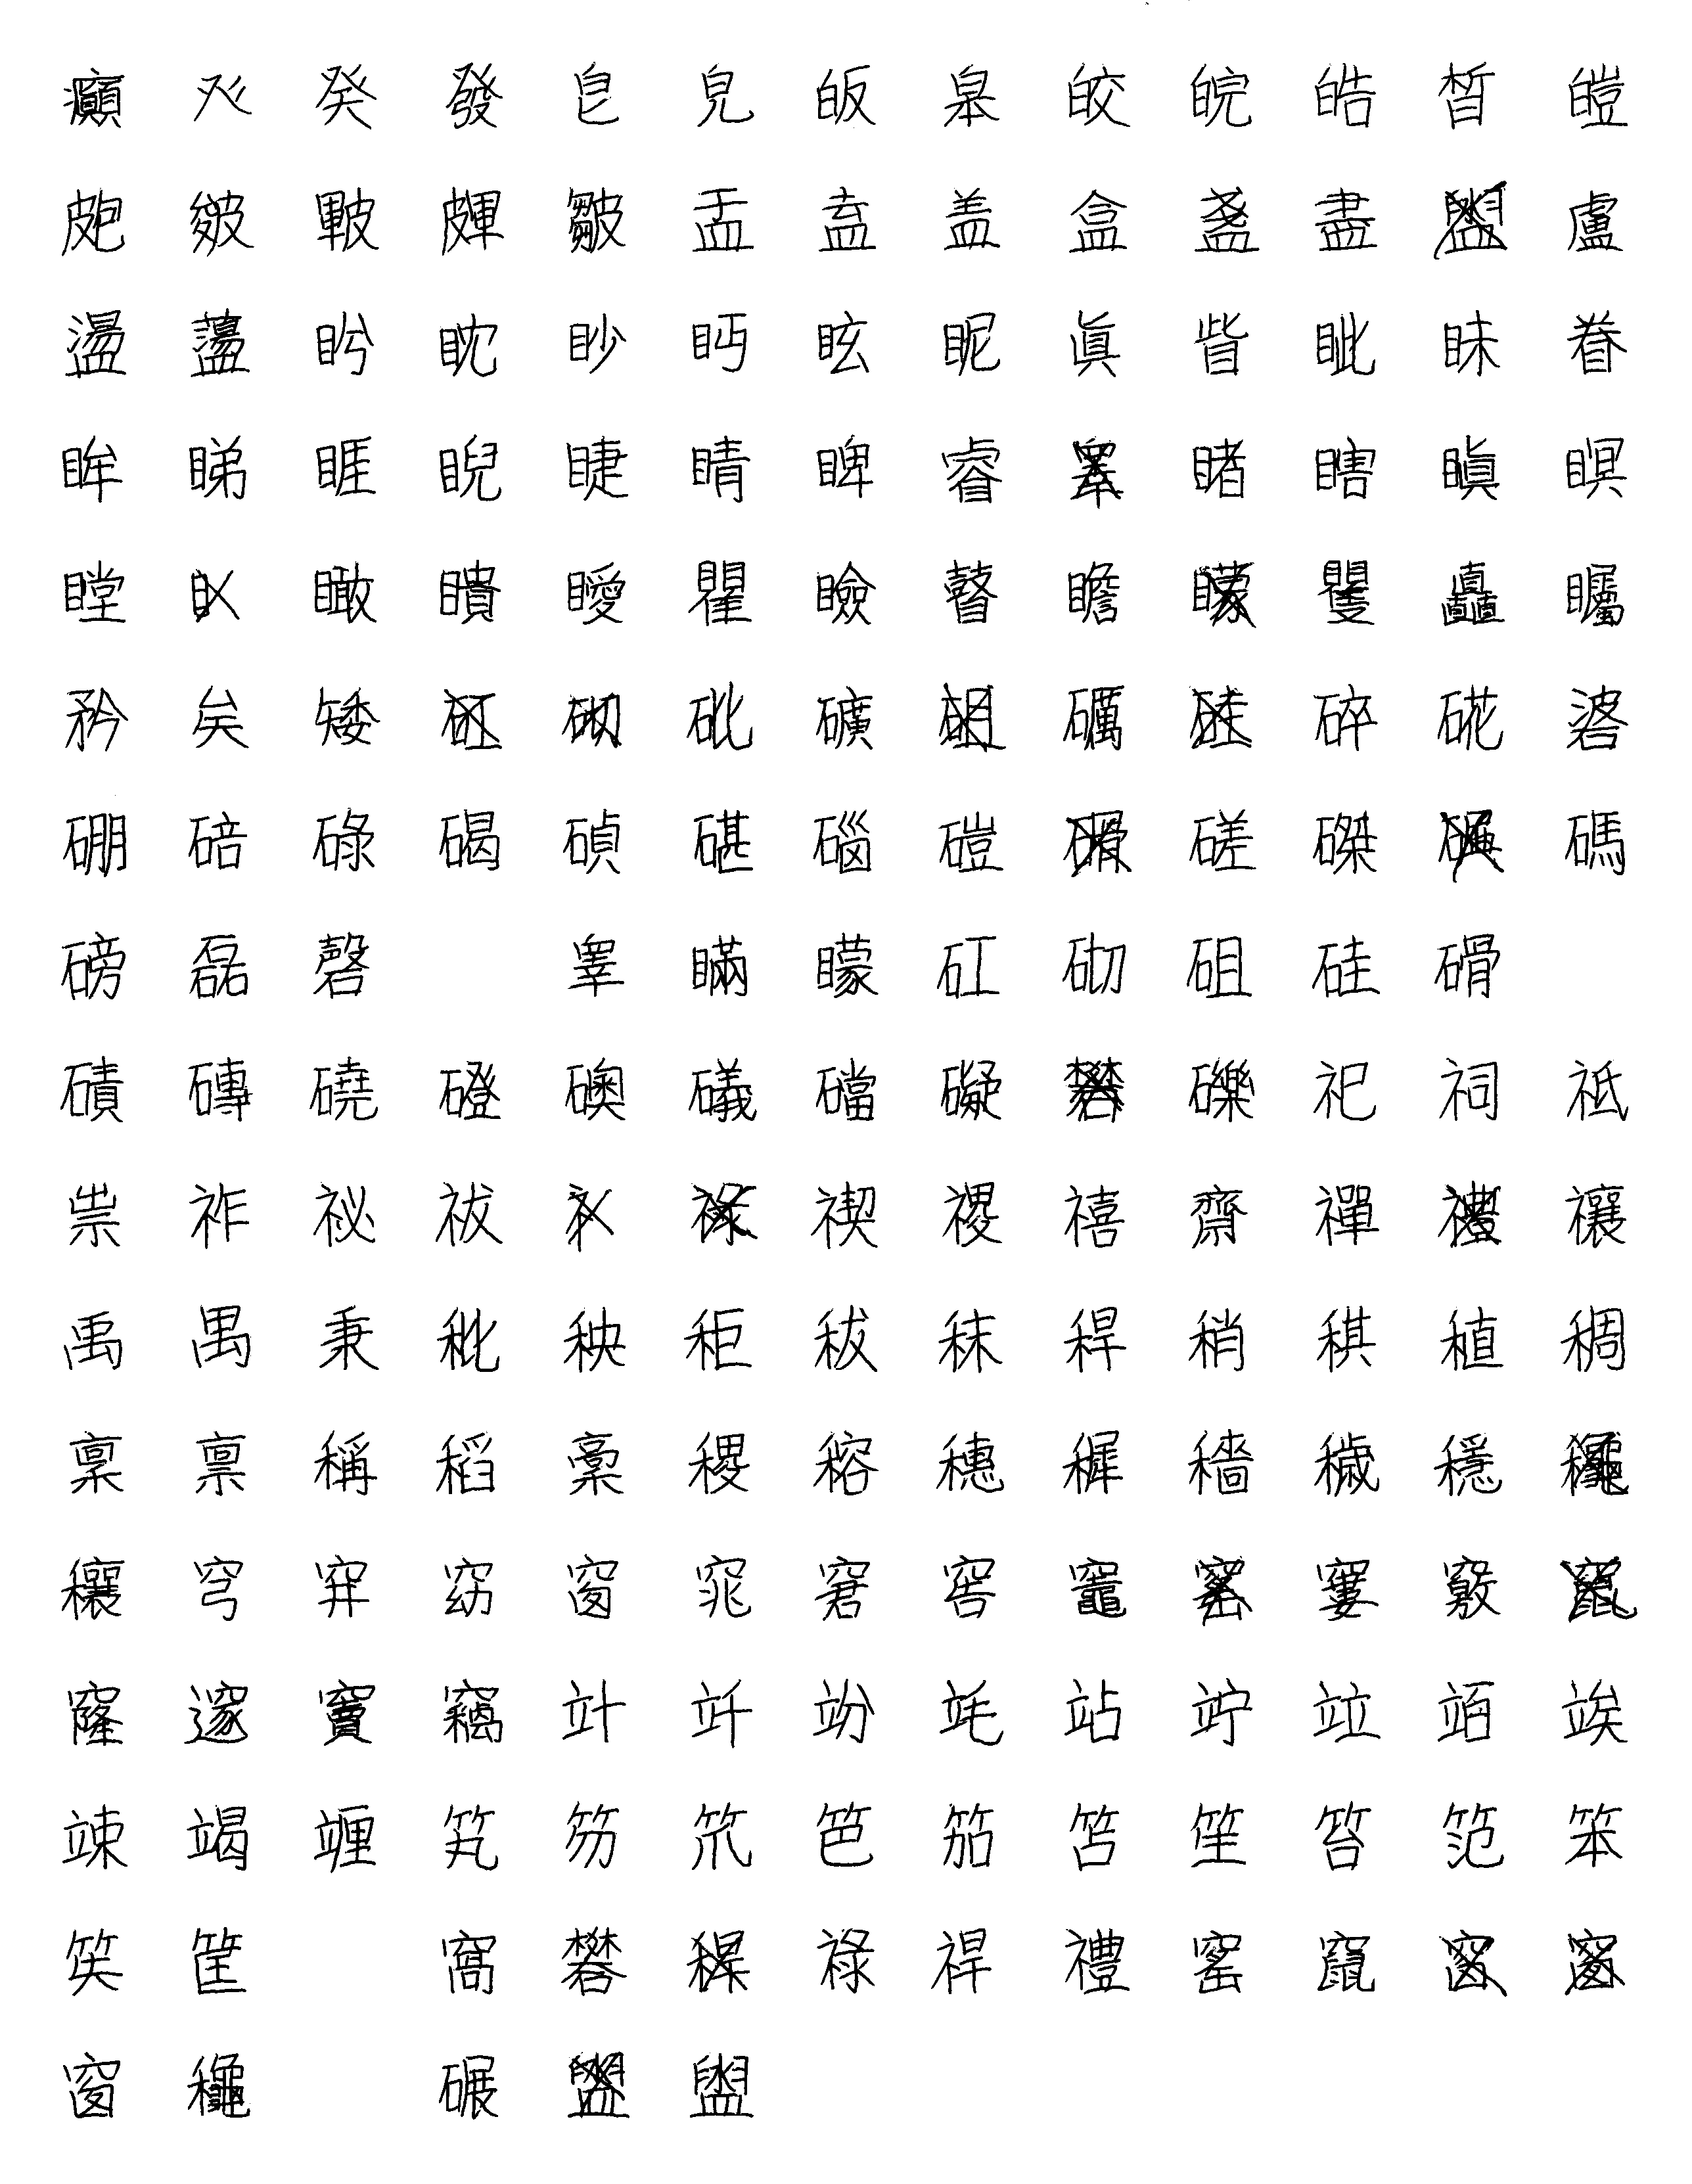 癲 癶 癸 發 皀 皃 皈 皋 皎 皖 皓 皙 皚
皰 皴 皸 皹 皺 盂 盍 盖 盒 盞 盡 盧
盪 蘯 盻 眈 眇 眄 眩 眤 眞 眥 眦 眛 眷
眸 睇 睚 睨 睫 睛 睥 睿 睹 瞎 瞋 瞑
瞠 瞰 瞶 瞹 瞿 瞼 瞽 瞻 矍 矗 矚
矜 矣 矮 砒 礦 礪 碎 硴 碆
硼 碚 碌 碣 碵 碪 碯 磑 磋 磔 碼
磅 磊 磬 睾 瞞 矇 矼 砌 砠 硅 磆
磧 磚 磽 磴 礇 礒 礑 礙 礫 祀 祠 祗
祟 祚 祕 祓 禊 禝 禧 齋 禪 禳
禹 禺 秉 秕 秧 秬 秡 秣 稈 稍 稘 稙 稠
稟 禀 稱 稻 稾 稷 穃 穗 穉 穡 穢 穩
穰 穹 穽 窈 窗 窕 窘 窖 竈 窶 竅
窿 邃 竇 竊 竍 竏 竕 竓 站 竚 竝 竡 竢
竦 竭 竰 笂 笏 笊 笆 笳 笘 笙 笞 笵 笨
笶 筐 窩 礬 祿 禮 窰 竄
窗 龝 碾 盥